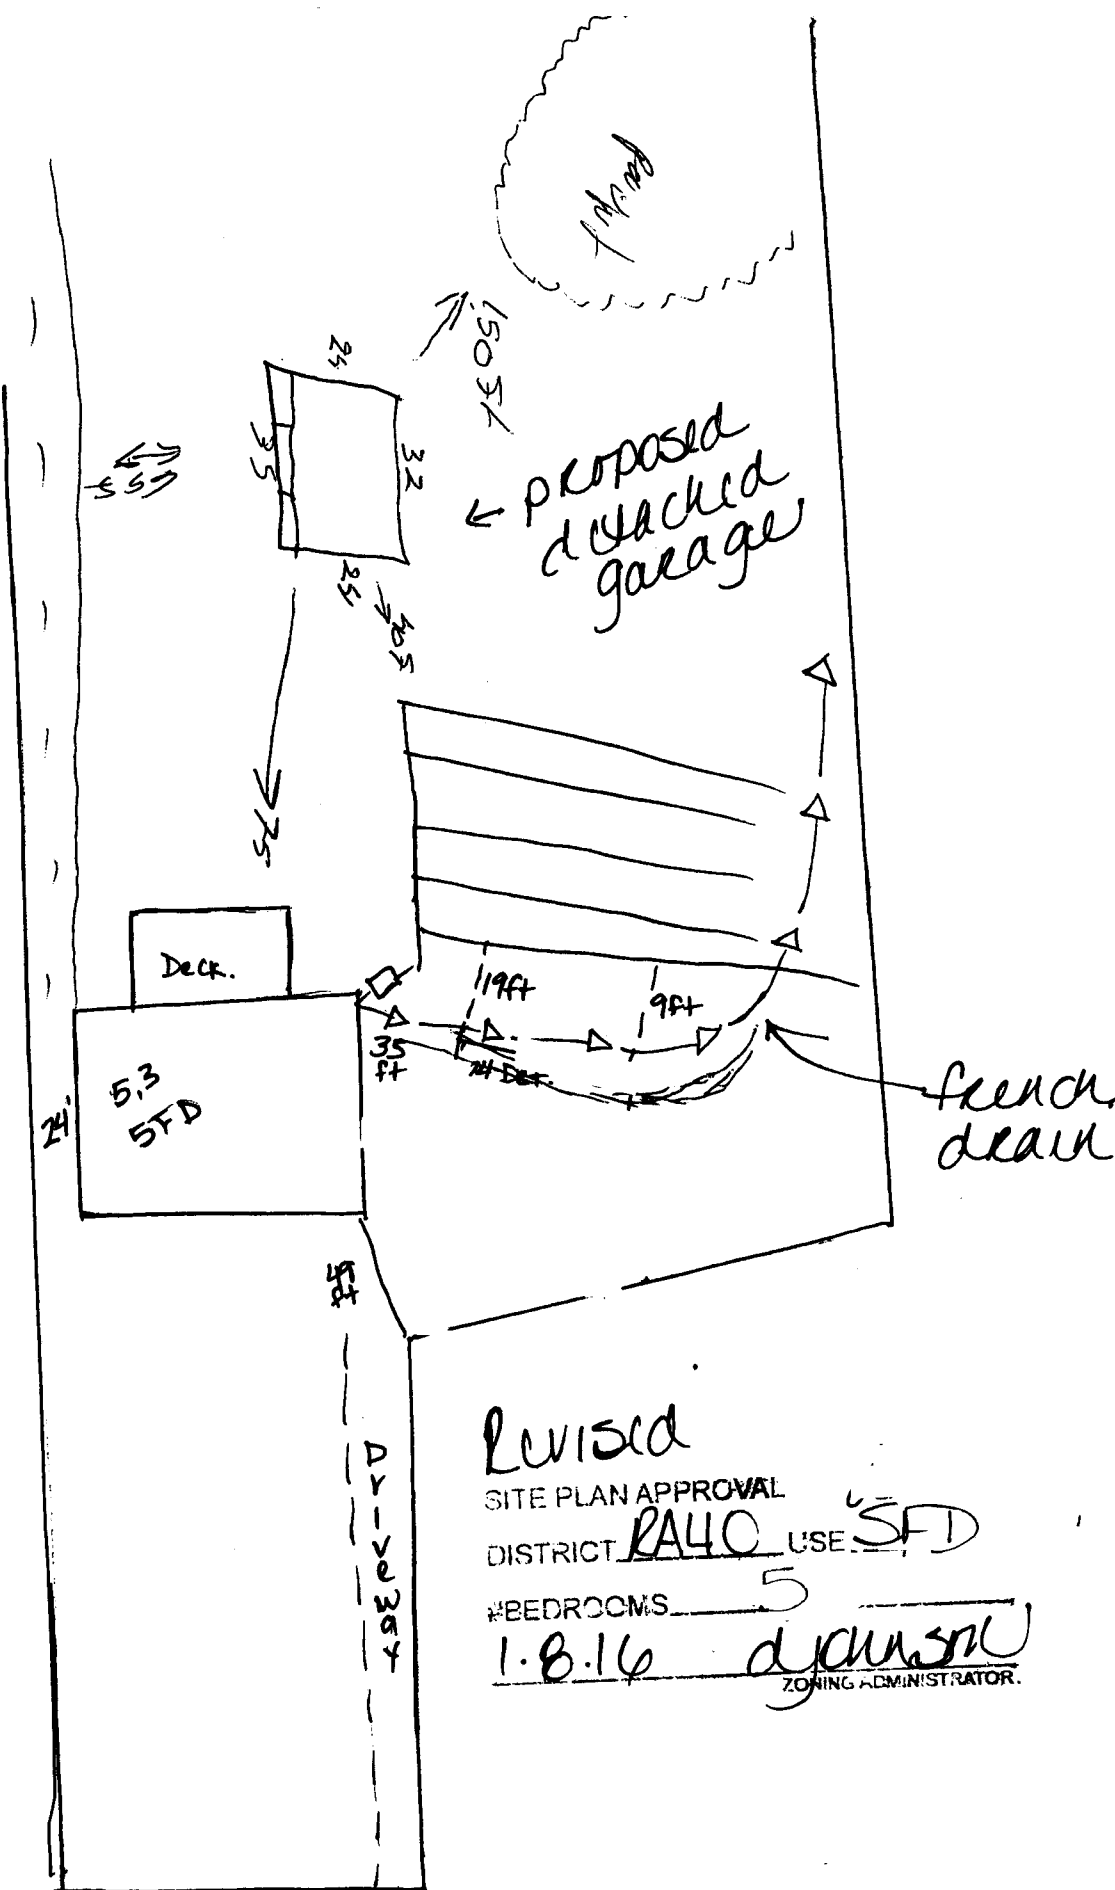 24
150 ft
35
32
proposed
detached
garage
25
75
Deck.
19ft
9ft
35
ft
24'
5,3
SFD
french
drain
49
ft
Driveway
Revised
SITE PLAN APPROVAL
DISTRICT RA40 USE SFD
#BEDROOMS 5
1.8.16 djohnson
ZONING ADMINISTRATOR.